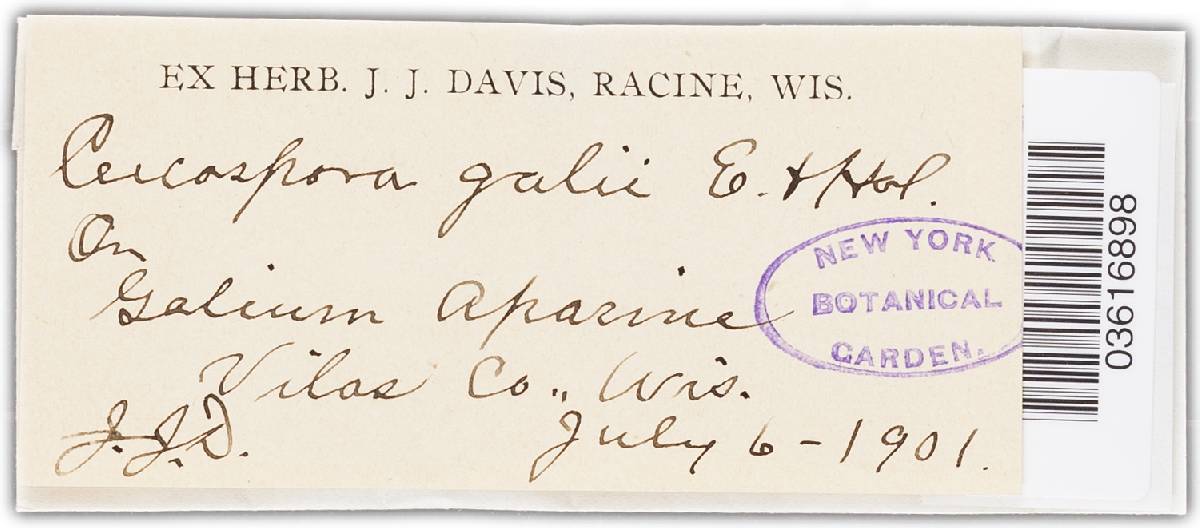 EX HERB. J. J. DAVIS, RACINE, WIS.
Cercospora galii E. & Hol.
On
Galium Aparine
Vilas Co., Wis.
J.J.D. July 6-1901.
NEW YORK
BOTANICAL
GARDEN.
03616898